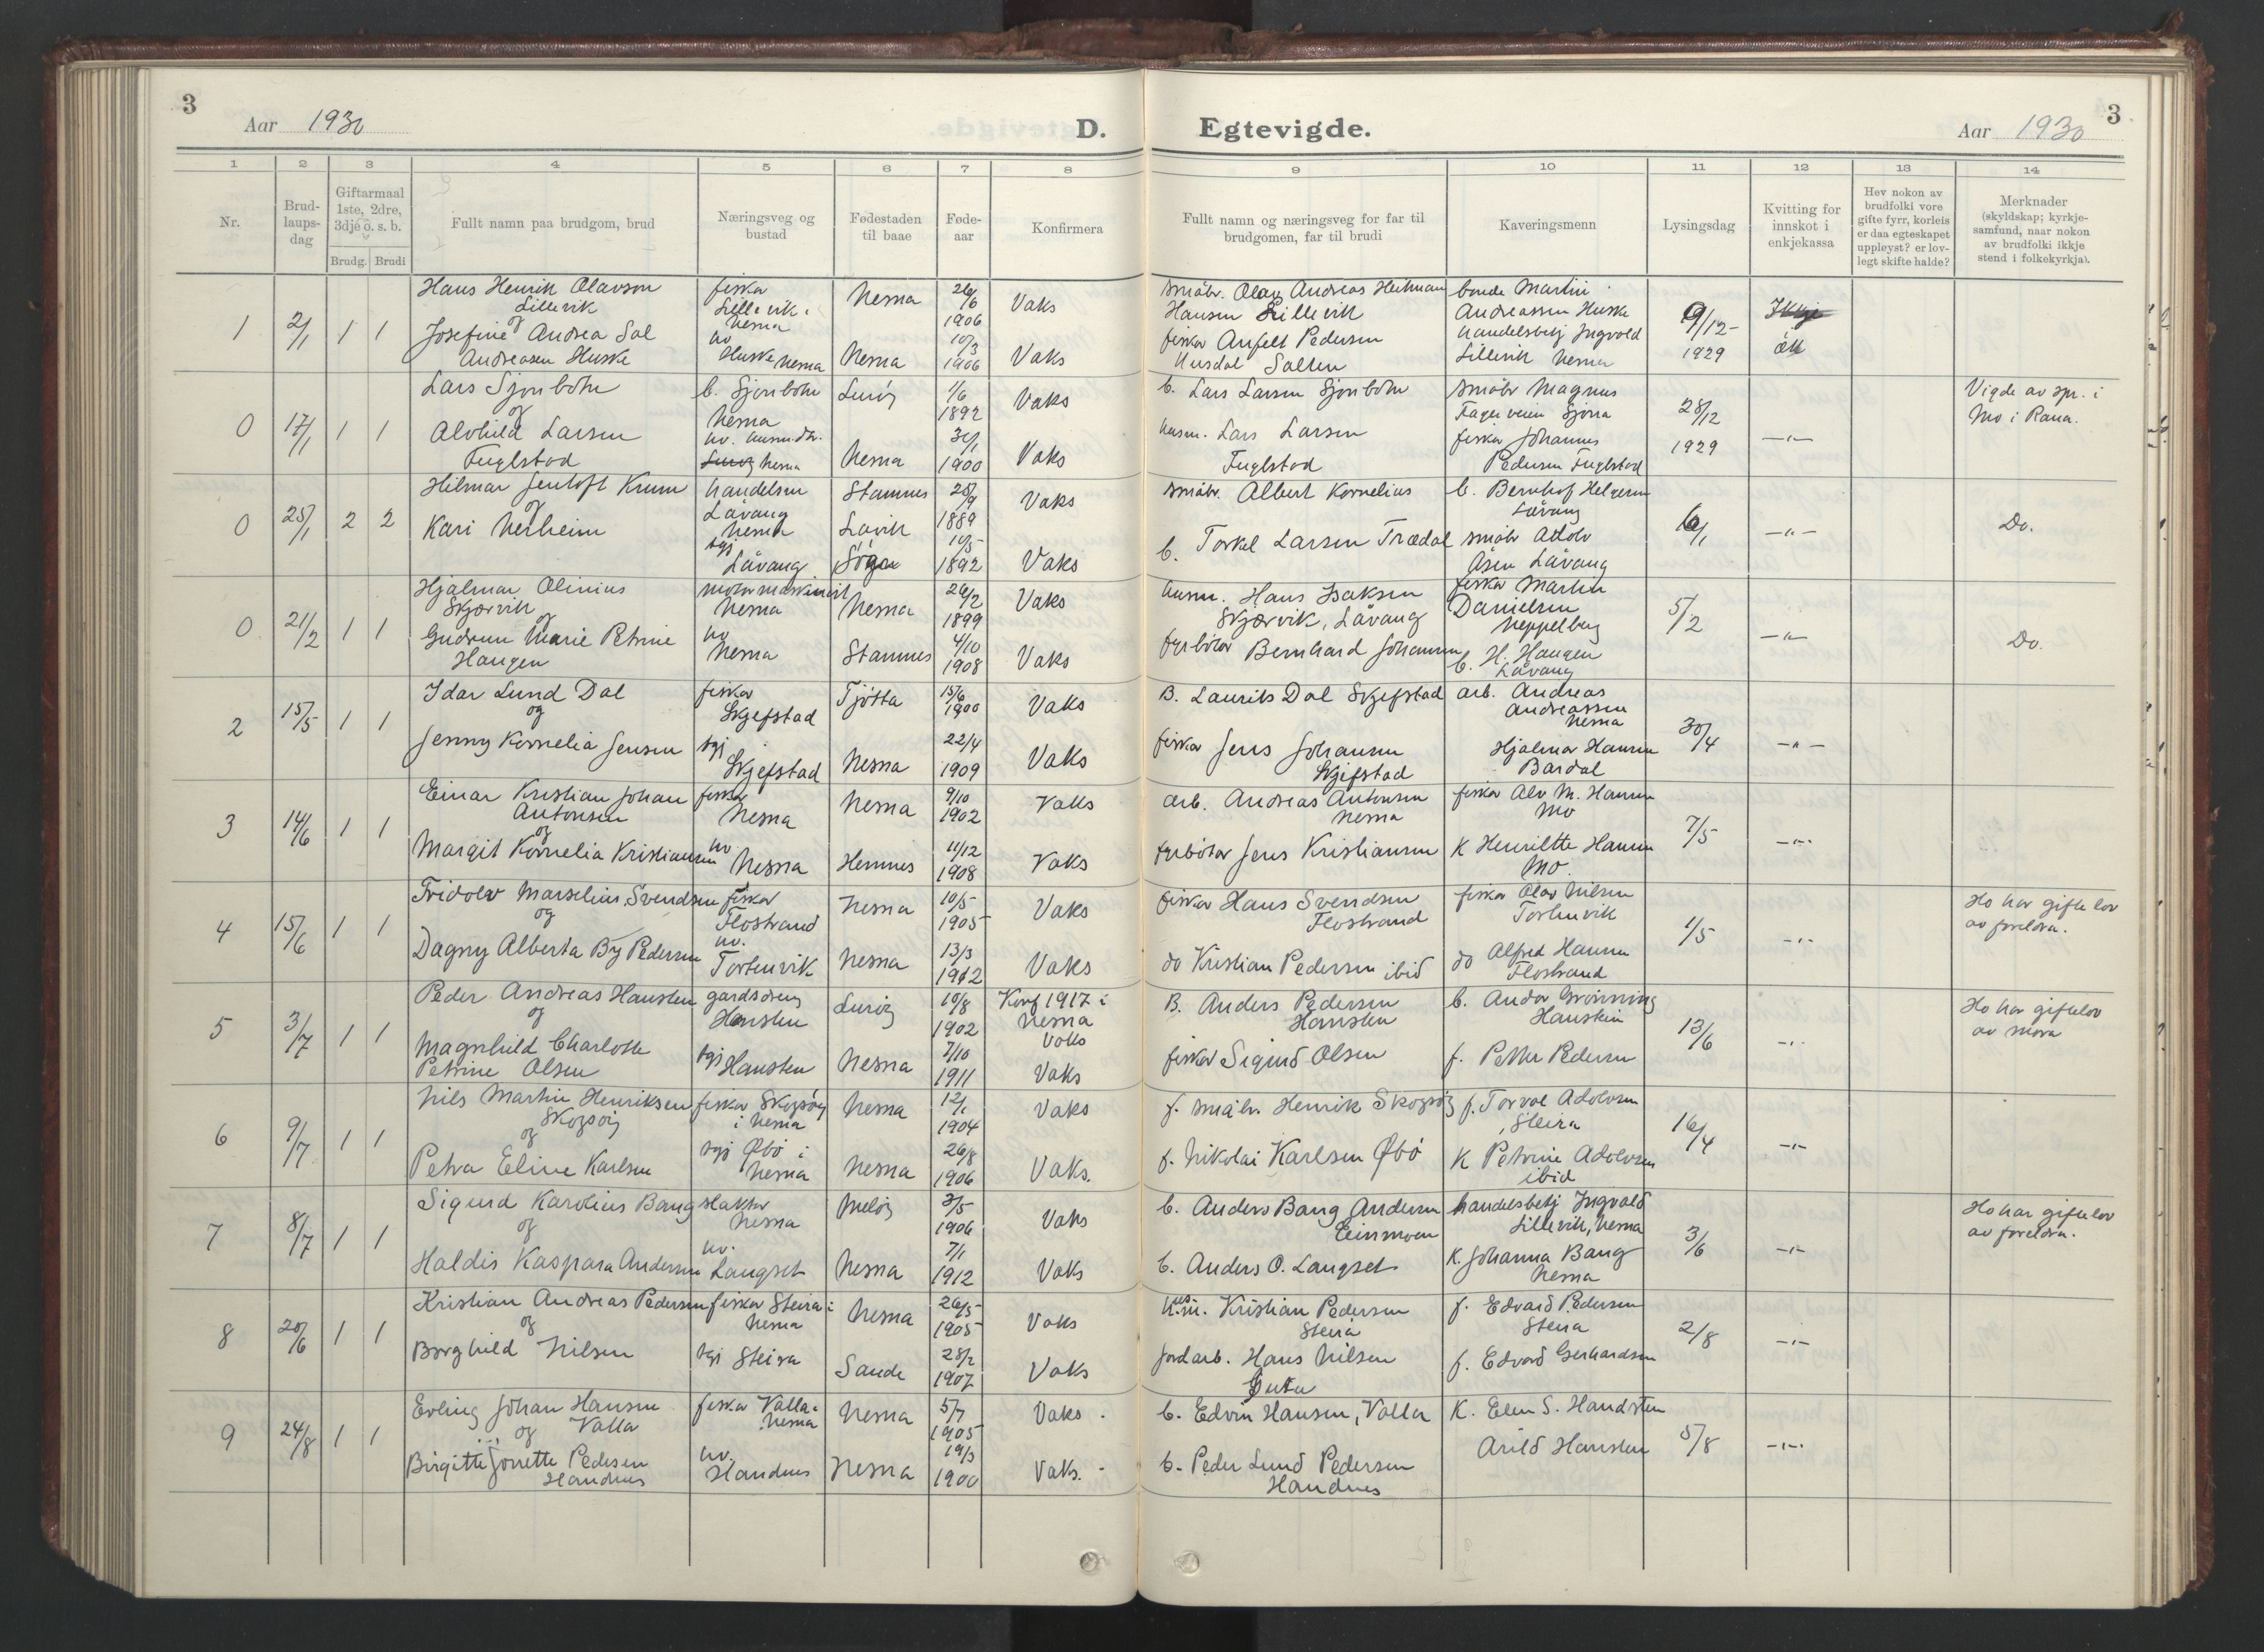 3
Aar 1930
D.
Egtevigde.
Aar 1930
3
1 2 3 4 5 6 7 8 9 10 11 12 13 14
Nr.
Brud-
laups-
dag
Giftarmaal
1ste, 2dre,
3dje o. s. b.
Brudg. Brudi
Fullt namn paa brudgom, brud
Næringsveg og
bustad
Fødestaden
til baae
Føde-
aar
Konfirmera
Fullt namn og næringsveg for far til
brudgomen, far til brudi
Kaveringsmenn
Lysingsdag
Kvitting for
innskot i
enkjekassa
Hev nokon av
brudfolki vore
gifte fyrr, korleis
er daa egteskapet
uppløyst? er lov-
legt skifte halde?
Merknader
(skyldskap; kyrkje-
samfund, naar nokon
av brudfolki ikkje
stend i folkekyrkja).
1
2/1
1 1
Hans Henrik Olavson
Lillevik
og
Josefine Andrea Sal
Andreasen Huske
fiskar
Lillevik i
Nesna
hv
Huske Nesna
Nesna
Nesna
26/6
1906
10/3
1906
Vaks
Vaks
småbr. Olav Andreas Heitman
Hansen Lillevik
fiskar Anfelt Pedersen
Husdal Salten
bonde Martin
Andreassen Huske
handelsbetj Ingvold
Lillevik Nesna
9/12-
1929
Ikkje
ok
0
17/1
1 1
Lars Sjonbotn
og
Alvhild Larsen
Fuglstad
b. Sjonbotn
Nesna
hv. husm.dtr.
Lurøy Nesna
Lurøy
Nesna
1/6
1892
31/1
1900
Vaks
Vaks
b. Lars Larsen Sjonbotn
husm. Lars Larsen
Fuglstad
småbr Magnus
Fagerveien Sjona
fiskar Johannes
Pedersen Fuglstad
28/12
1929
—"—
Vigde av spr. i
Mo i Rana.
0
25/1
2 2
Hilmar Jentoft Krum
og
Kari Nerheim
handelsm
Låvang
Nesna
tgj
Låvang
Stamnes
Lavik
Sogn
25/9
1889
10/5
1892
Vaks
Vaks
småbr. Albert Kornelius
b. Torkel Larsen Trædal
b. Bernhof Helgesen
Låvang
småbr Adolv
Åsen Låvang
6/1
—"—
Do.
0
21/2
1 1
Hjalmar Olinius
Skjærvik
og
Gudrun Marie Petrine
Haugen
motormaskinist
Nesna
hv
Nesna
Nesna
Stamnes
26/2
1899
4/10
1908
Vaks
Vaks
husm. Hans Isaksen
Skjærvik, Låvang
fyrbötar Bernhard Johansen
fiskar Martin
Danielsen
Neppelberg
b. H. Haugen
Låvang
5/2
—"—
Do.
2
15/5
1 1
Idar Lund Dal
og
Jenny Kornelia Jensen
fiskar
Skjefstad
tgj
Skjefstad
Tjötta
Nesna
15/6
1900
22/4
1909
Vaks
Vaks
B. Laurits Dal Skjefstad
fiskar Jens Johansen
Skjefstad
arb. Andreas
Andreassen
Nesna
Hjalmar Hansen
Bardal
30/4
—"—
3
14/6
1 1
Einar Kristian Johan
Antonsen
og
Margit Kornelia Kristiansen
fiskar
Nesna
hv
Nesna
Nesna
Hemnes
9/10
1902
11/12
1908
Vaks
Vaks
arb. Andreas Antonsen
Nesna
fyrbötar Jens Kristiansen
fiskar Alv M. Hansen
Mo
K Henriette Hansen
Mo.
7/5
—"—
4
15/6
1 1
Fridolv Marselius Svendsen
og
Dagny Alberta By Pedersen
fiskar
Flostrand
hv.
Tortenvik
Nesna
Nesna
10/5
1905
13/3
1912
Vaks
Vaks
fiskar Hans Svendsen
Flostrand
do Kristian Pedersen ibid
fiskar Olav Nilsen
Tortenvik
do Alfred Hansen
Flostrand
1/5
—"—
Ho har giftelov
av foreldra.
5
3/7
1 1
Peder Andreas Hansten
og
Magnhild Charlotte
Petrine Olsen
gardsdreng
Hansten
tgj Hansten
Lurøy
Nesna
10/8
1902
7/10
1911
Konf 1917 i
Nesna
Vaks
Vaks
B. Anders Pedersen
Hansten
fiskar Sigurd Olsen
b. Andor Grønning
Hanstein
f. Petter Pedersen
13/6
—"—
Ho har giftelov
av mora
6
9/7
1 1
Nils Martin Henriksen
Skogsöy
og
Petra Eline Karlsen
fiskar Skogsöy
i Nesna
tgj Øbö i
Nesna
Nesna
Nesna
12/1
1904
26/8
1906
Vaks
Vaks.
f. småbr. Henrik Skogsöy
f. Nikolai Karlsen Øbö
f. Torval Adolvsen
Steira
K Petrine Adolvsen
ibid
16/4
—"—
7
8/7
1 1
Sigurd Karolius Bang
og
Haldis Kaspara Andersen
slaktar
Nesna
hv.
Langset
Meløy
Nesna
3/5
1906
7/1
1912
Vaks
Vaks
b. Anders Bang Andersen
Einmoen
b. Anders O. Langset
handelsbetj Ingvald
Lillevik, Nesna
K. Johanna Bang
Nesna
3/6
—"—
Ho har giftelov
av foreldra.
8
20/6
1 1
Kristian Andreas Pedersen
og
Borghild Nilsen
fiskar Steira i
Nesna
tgj Steira
Nesna
Sande
26/5
1905
28/2
1907
Vaks
Vaks
Kristian Pedersen
Steira
jordarb. Hans Nilsen
f. Edvard Pedersen
Steira
f. Edvard Gerhardsen
2/8
—"—
9
24/8
1 1
Erling Johan Hansen
Valla
og
Birgitte Jonette Pedersen
Handnes
fiskar Valla i
Nesna
hv.
Handnes
Nesna
Nesna
5/7
1905
19/3
1900
Vaks
Vaks.
b. Edvin Hansen, Valla
b. Peder Lund Pedersen
Handnes
K. Elen S. Handsten
Arild Hansten
5/8
—"—